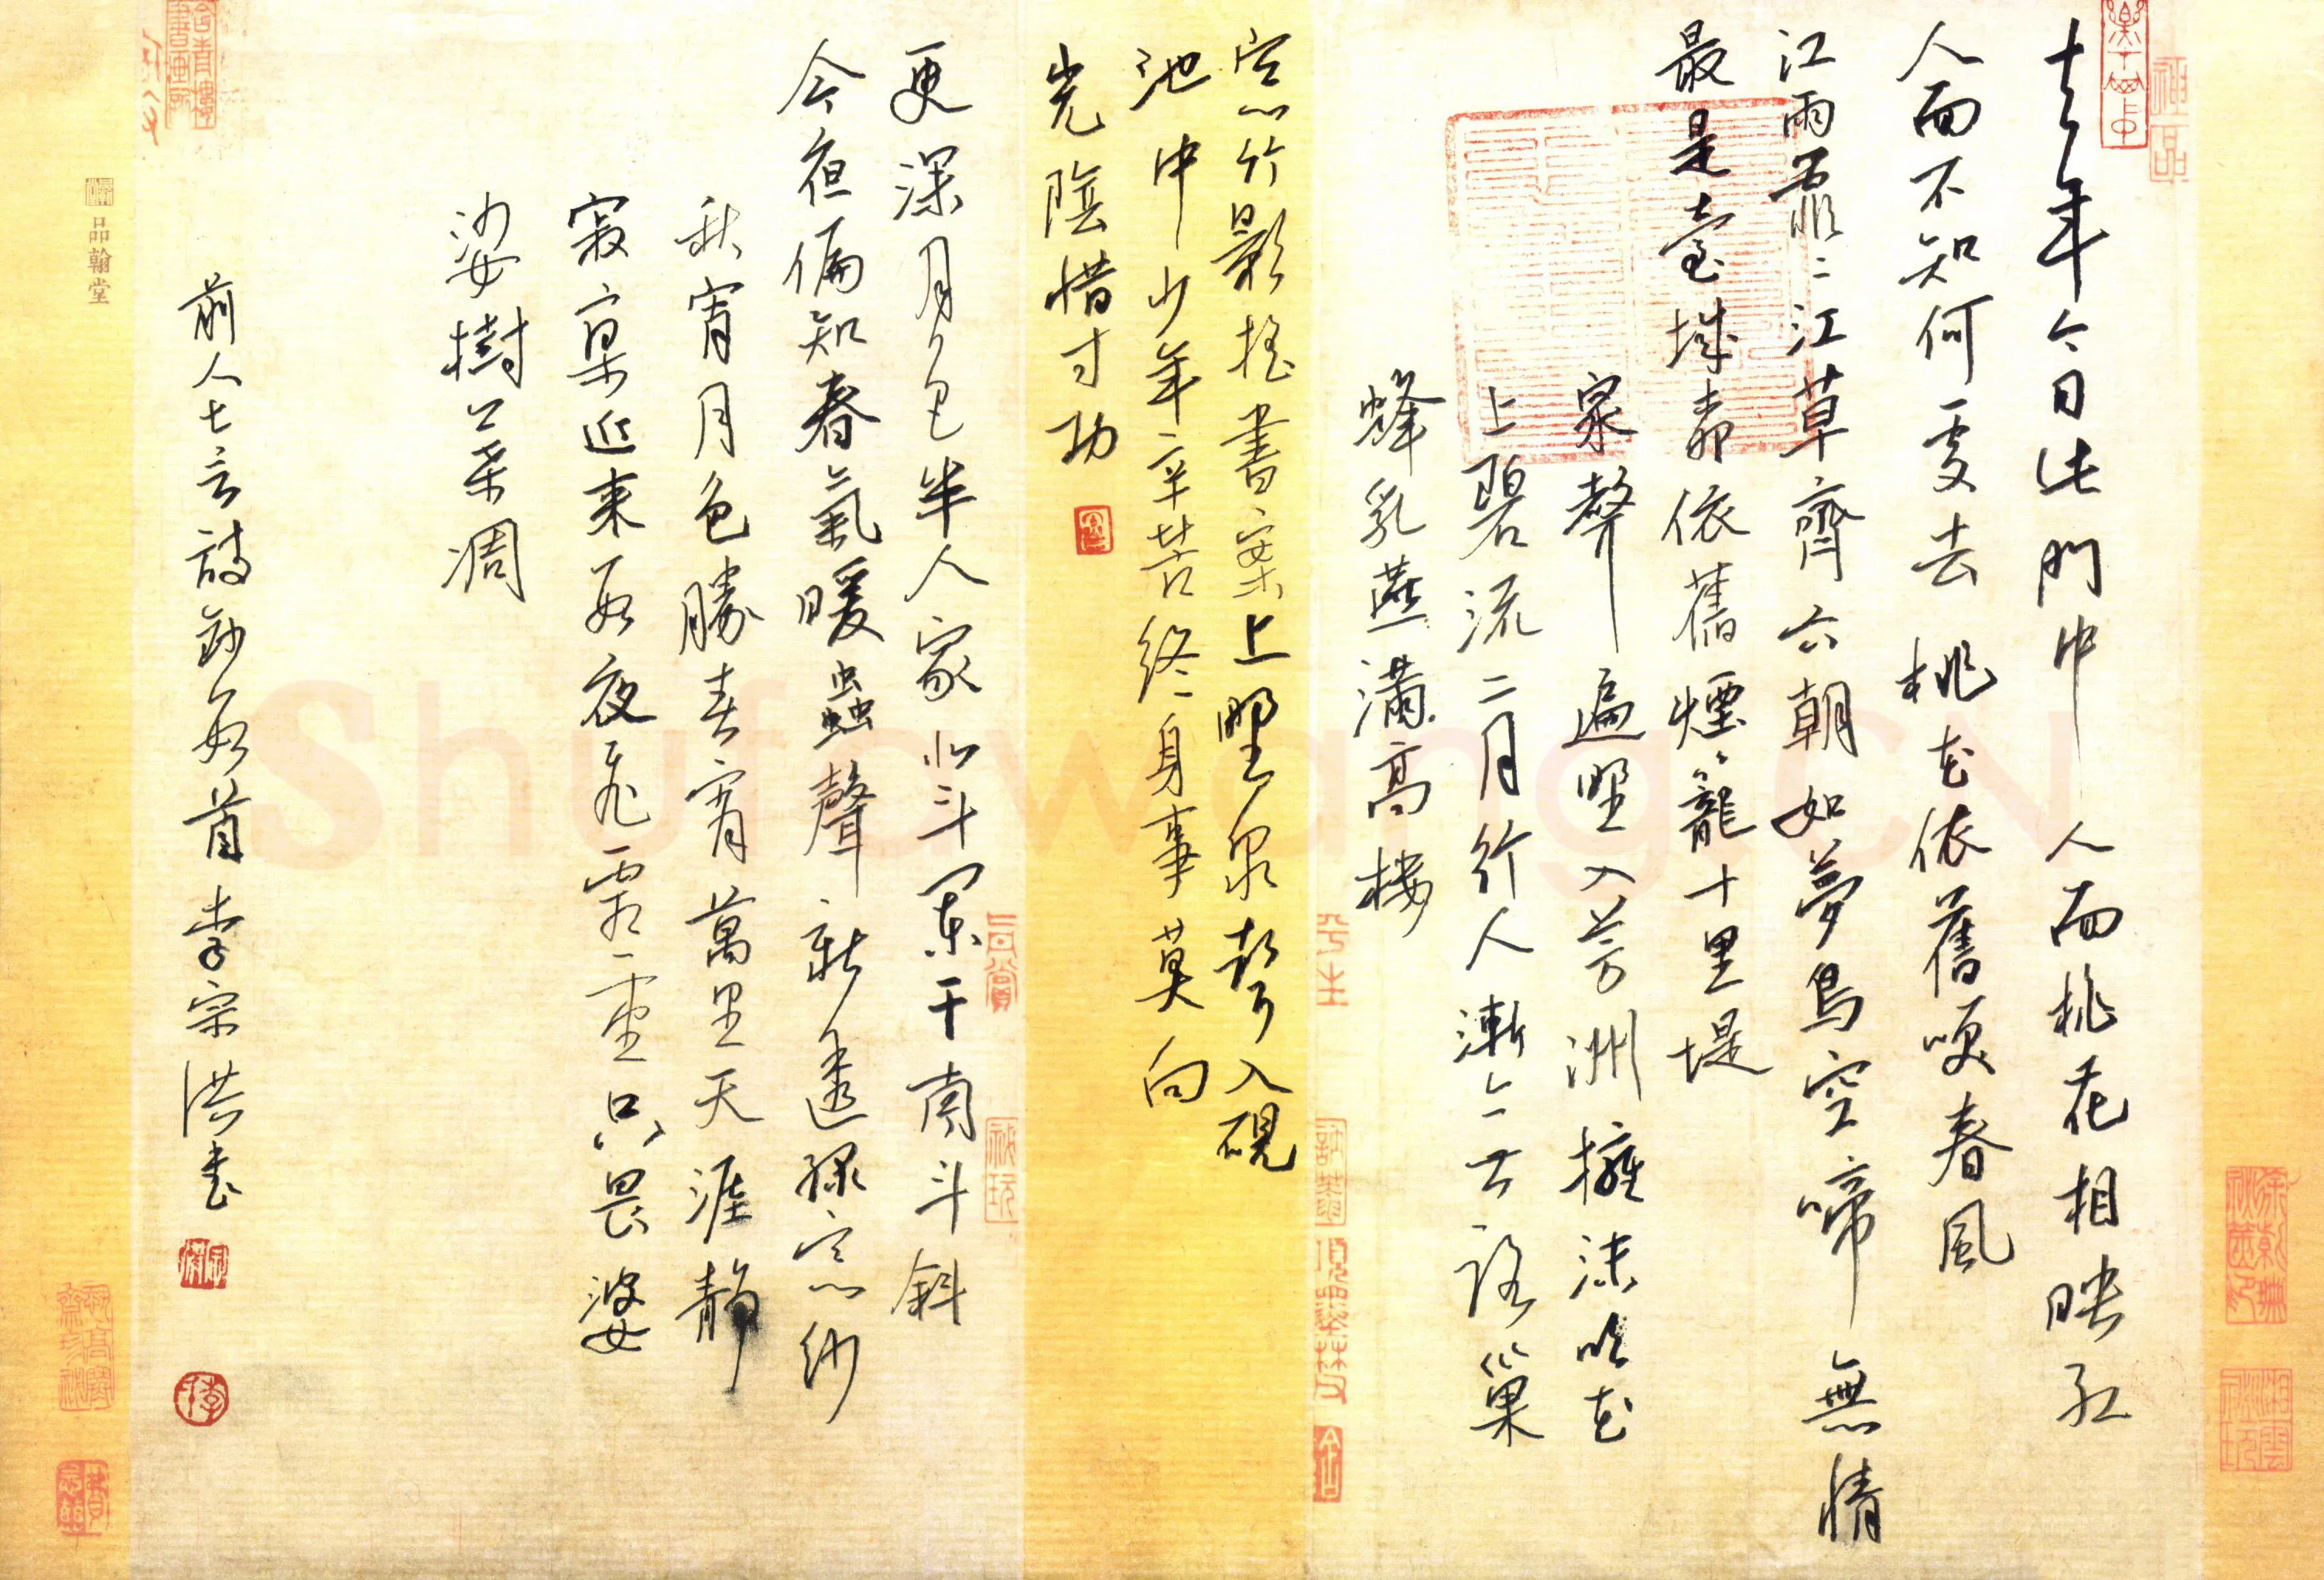 去年今日此門中 人面桃花相映紅
人面不知何處去 桃花依舊咲春風
江雨霏〻江草齊六朝如夢鳥空啼無情
最是臺城柳依舊煙籠十里堤
泉聲遍野入芳洲擁沫吹花
上碧流二月行人漸无路巢
蜂乳燕滿高樓
窗竹影搖書案上野泉聲入硯
池中少年辛苦終身事莫向
光陰惜寸功
更深月色半人家北斗闌干南斗斜
今夜偏知春氣暖蟲聲新透綠窗紗
秋宵月色勝春宵萬里天涯靜
寂寥近來數夜飛霜重只畏婆
娑樹葉凋
前人七言詩鈔數首李宗洪書
品翰堂
Shufawang.CN